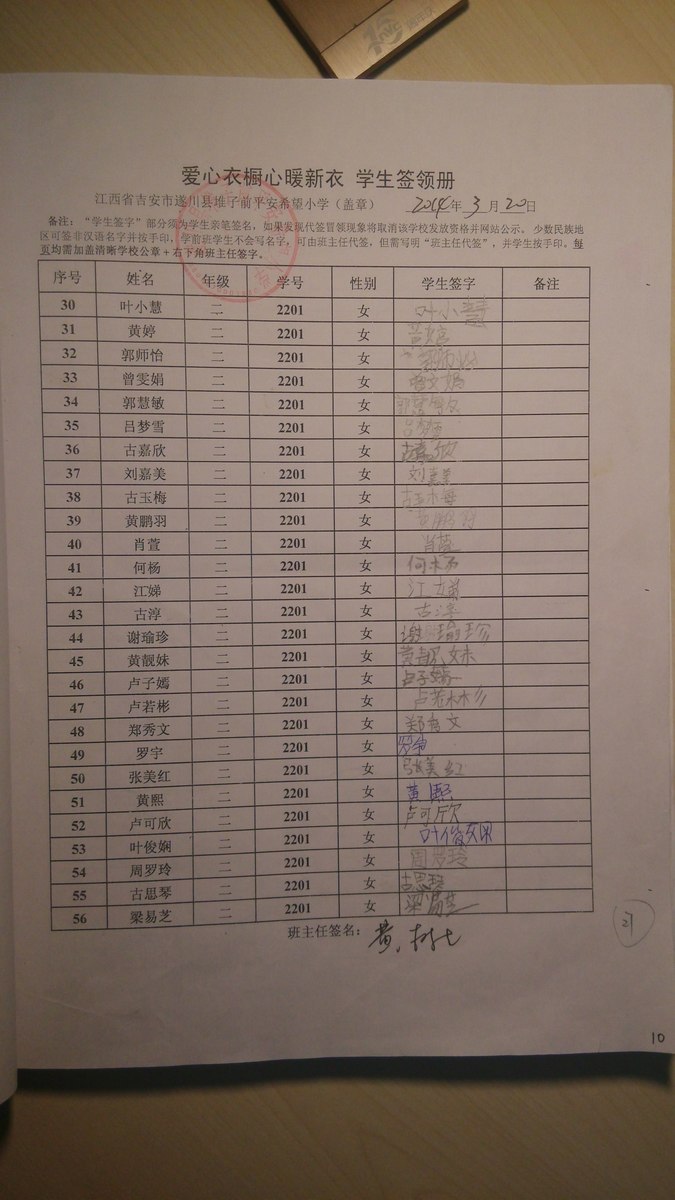 爱心衣橱心暖新衣 学生签领册
江西省吉安市遂川县堆子前平安希望小学（盖章） 2014年3月20日
备注：“学生签字”部分须为学生亲笔签名，如果发现代签冒领现象将取消该学校发放资格并网站公示。 少数民族地
区可签非汉语名字并按手印，学前班学生不会写名字，可由班主任代签，但需写明“班主任代签”，并学生按手印。每
页均需加盖清晰学校公章＋右下角班主任签字。
序号 姓名 年级 学号 性别 学生签字 备注
30 叶小慧 二 2201 女 叶小慧
31 黄婷 二 2201 女 黄婷
32 郭师怡 二 2201 女 郭师怡
33 曾雯娟 二 2201 女 曾文娟
34 郭慧敏 二 2201 女 郭慧敏
35 吕梦雪 二 2201 女 吕梦雪
36 古嘉欣 二 2201 女 古嘉欣
37 刘嘉美 二 2201 女 刘嘉美
38 古玉梅 二 2201 女 古玉梅
39 黄鹏羽 二 2201 女 黄鹏羽
40 肖萱 二 2201 女 肖萱
41 何杨 二 2201 女
42 江娣 二 2201 女 江娣
43 古淳 二 2201 女 古淳
44 谢瑜珍 二 2201 女 谢瑜珍
45 黄靓妹 二 2201 女 黄靓妹
46 卢子嫣 二 2201 女 卢子嫣
47 卢若彬 二 2201 女 卢若彬
48 郑秀文 二 2201 女 郑秀文
49 罗宇 二 2201 女 罗宇
50 张美红 二 2201 女 张美红
51 黄熙 二 2201 女 黄熙
52 卢可欣 二 2201 女 卢可欣
53 叶俊娴 二 2201 女
54 周罗玲 二 2201 女 周罗玲
55 古思琴 二 2201 女 古思琴
56 梁易芝 二 2201 女 梁易芝
班主任签名：黄
27
10